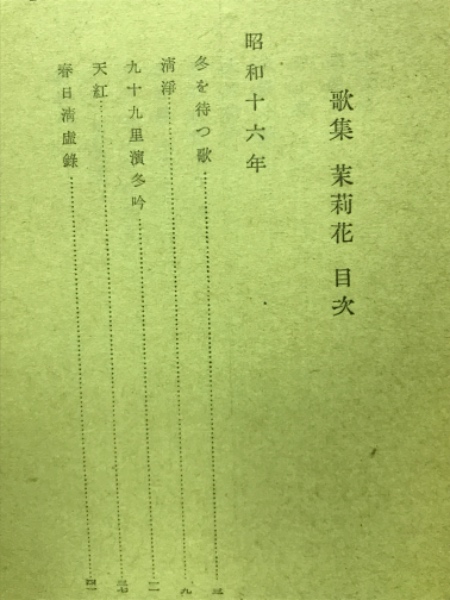 歌集 茉莉花 目次
昭和十六年
冬を待つ歌……三
淸淨……九
九十九里濱冬吟……二
天紅……
春日淸虛錄……